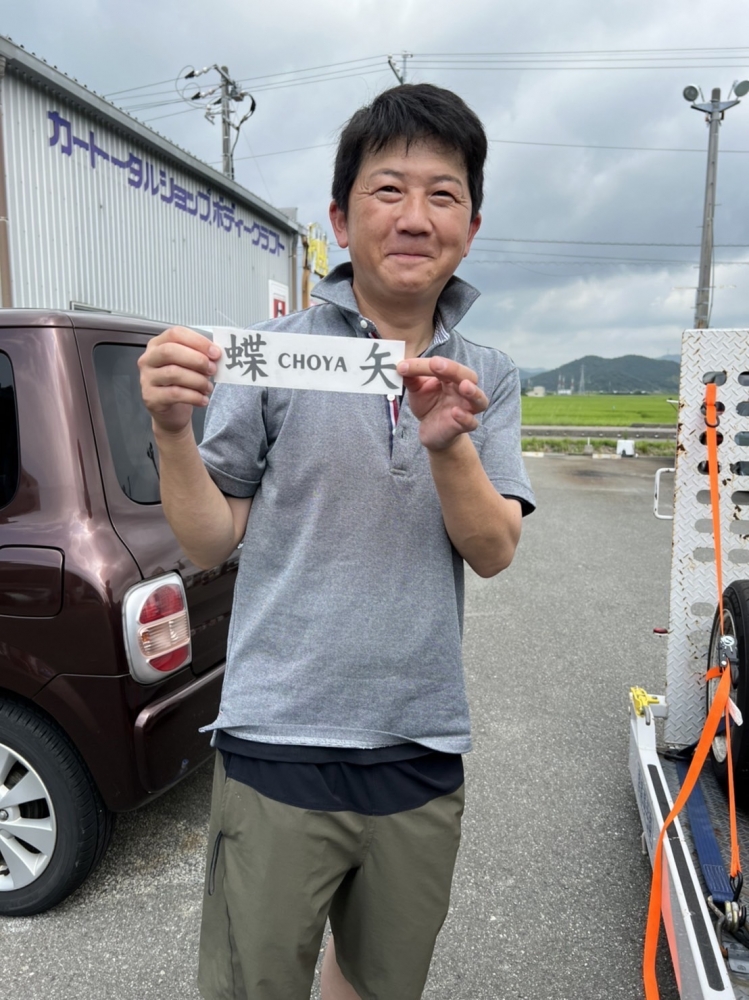 カートータルショップ.ボディークラフト
蝶 CHOYA 矢